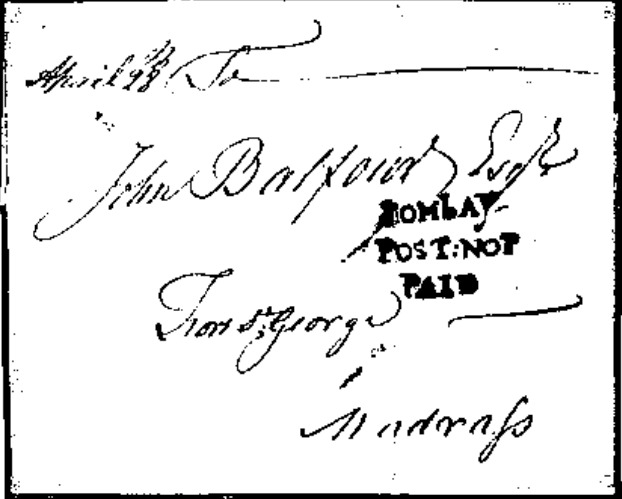 April 28 To
John Balfour Esqr
BOMBAY
POST:NOT
PAID
Fort St. George
Madraſs